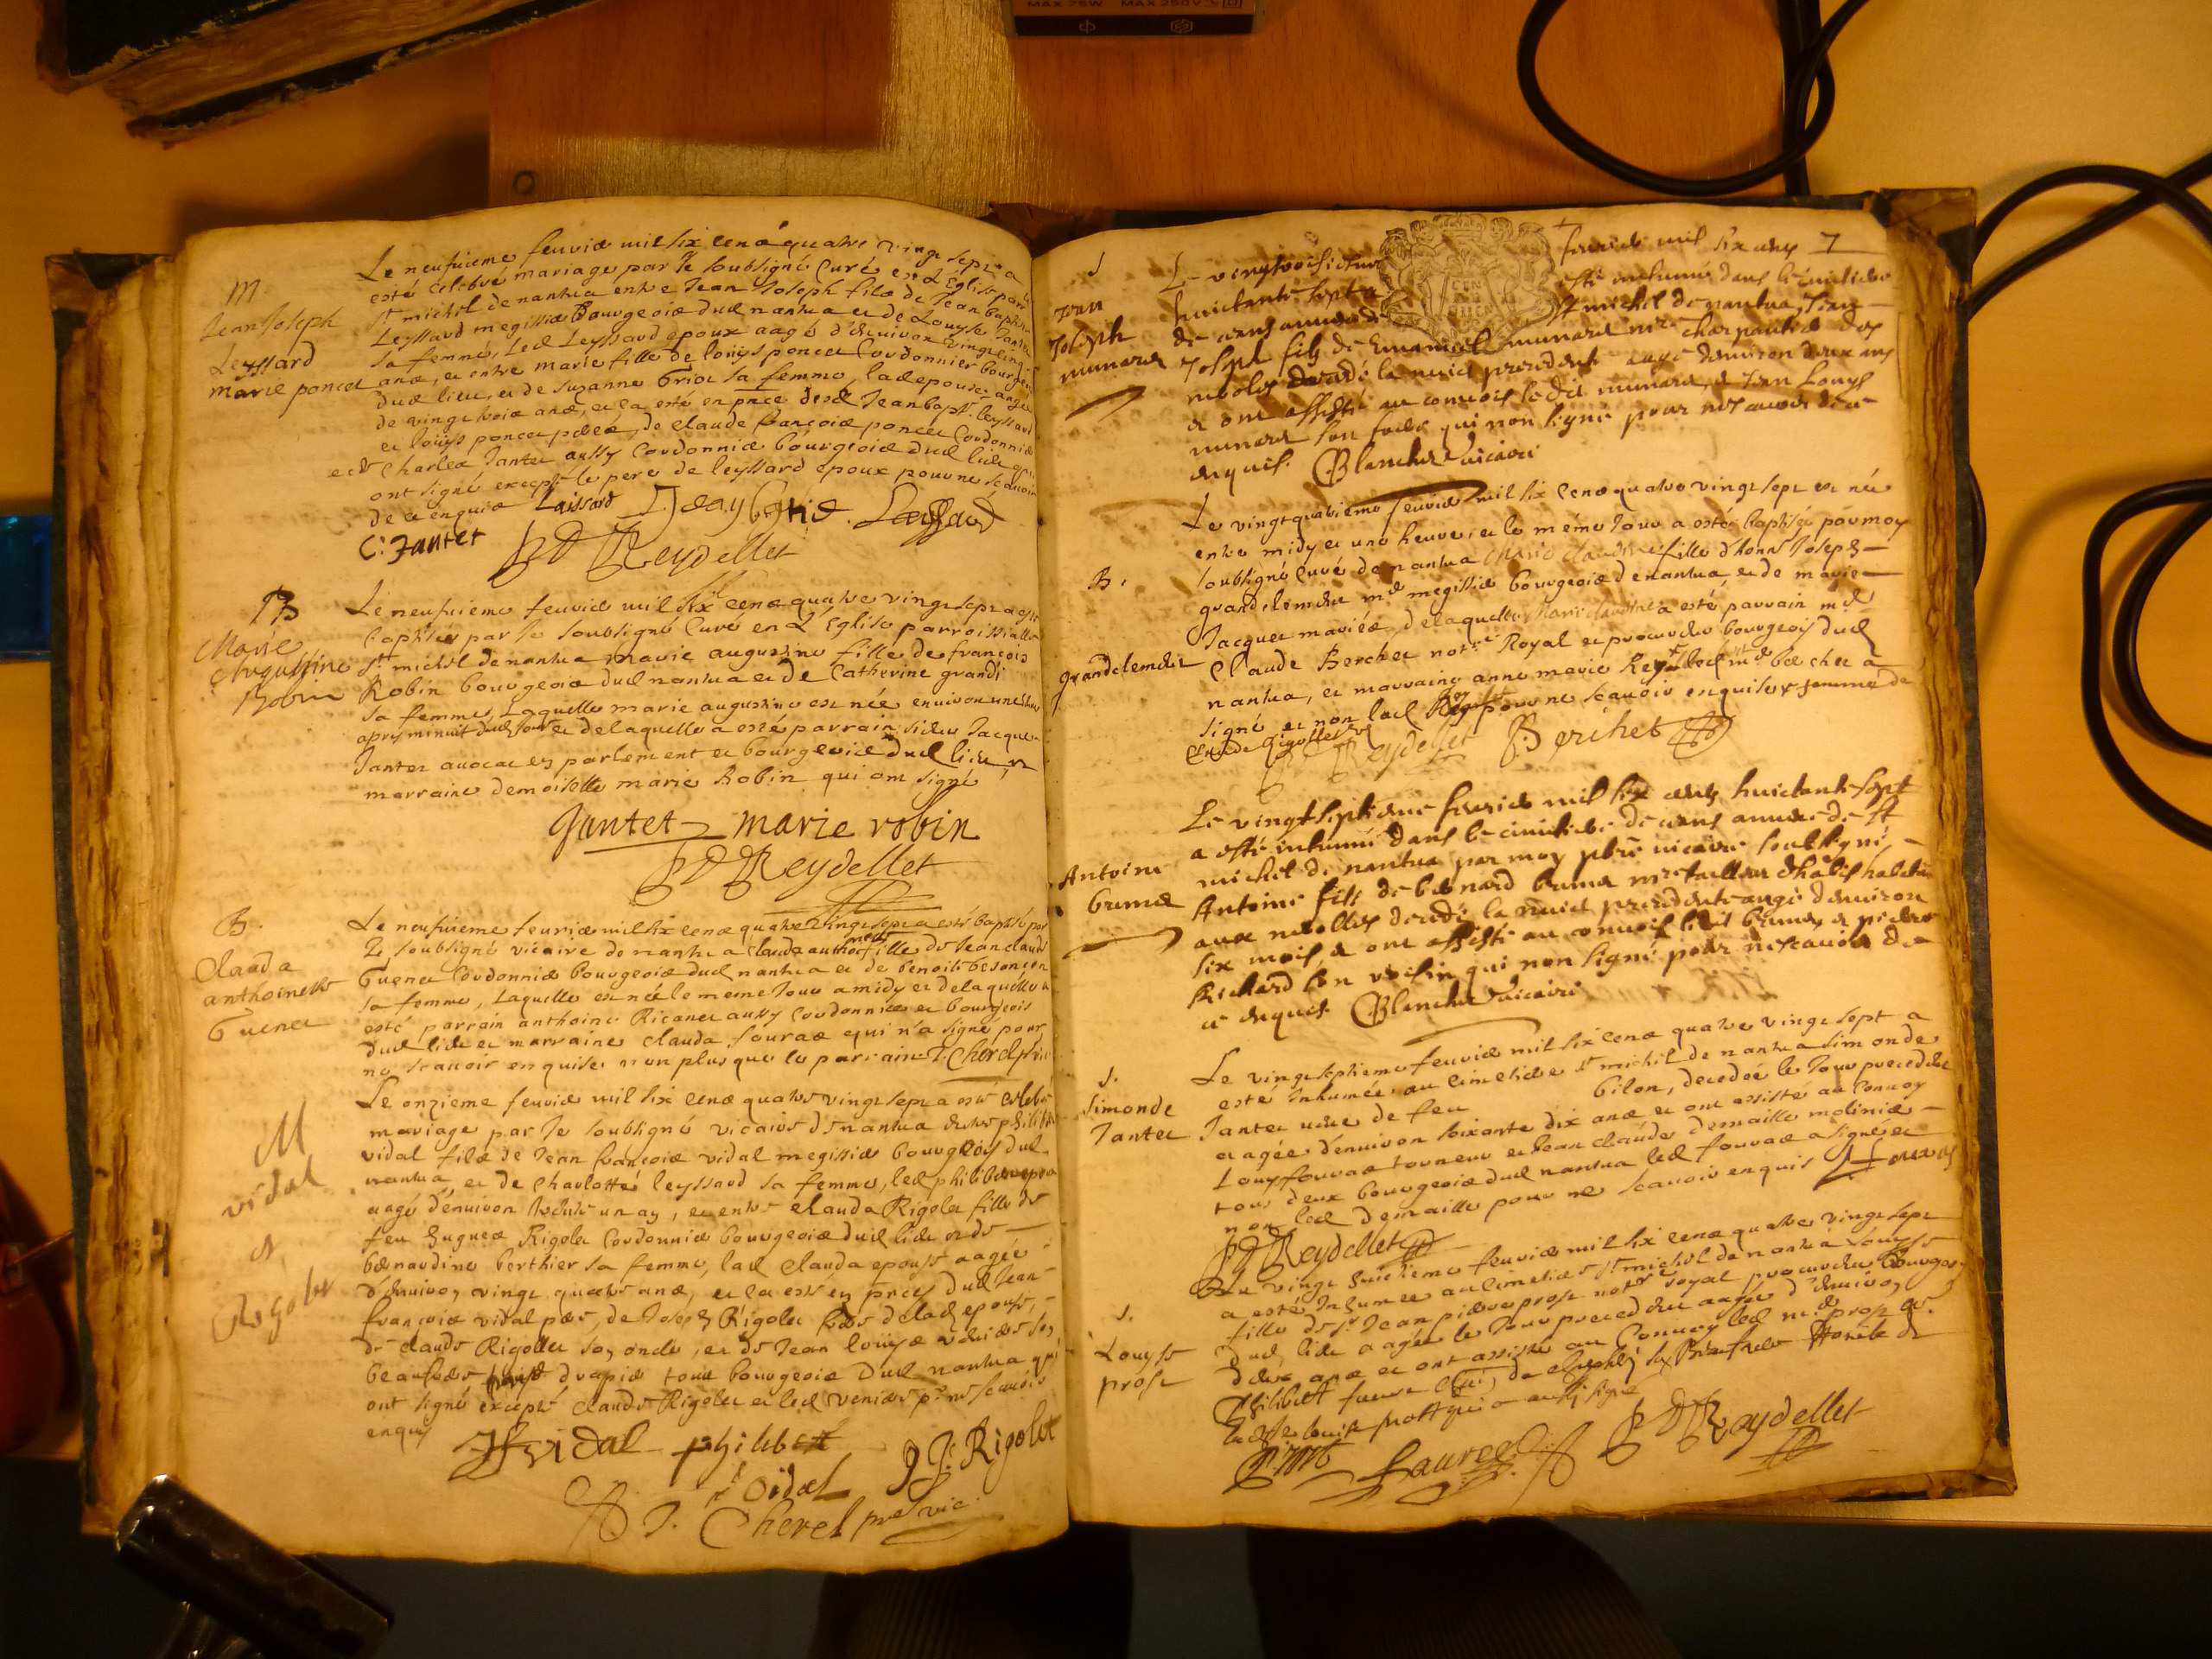 MAX 75W MAX 250V
M.
Jean Joseph
Leyssard
marie poncet
Le neufuieme feurier mil six cens quatre vingt sept a
esté celebré mariage par le soubsigné Curé en L'Eglise par
st michel de nantua entre Jean Joseph fils de Jean baptiste
Leyssard megissier Bourgeois dud nantua et de Louyse Jantet
sa femme, Led Leyssard epoux aagé d'enuiron vingt cinq
ans, et entre marie fille de loüys poncet Cordonnier bourgeois
dud lieu, et de Suzanne briot sa femme, lad epouse aagée
de vingt trois ans, et ca esté en pnce desd Jean bapt. leyssard
et loüys poncet peres, de claude françois poncet Cordonnier
et de Charles Jantet aussy Cordonnier bourgeois dud lieu qui
ont signé excepté le pere de leyssard epoux pour ne scauoir
de ce enquis Laissard Leyssard
C: Jantet Reydellet
B
Marie
Augustine
Robin
Le neufuieme feurier mil six cens quatre vingt sept a esté
baptisée par le soubsigné Curé en L'Eglise parroissialle
st michel de nantua marie augustine fille de françois
Robin bourgeois dud nantua et de Catherine grandi
sa femme, Laquelle marie augustine est née enuiron une heure
apres minuit dud jour et de laquelle a esté parrain sieur Jacques
Jantet auocat en parlement et bourgeois dud lieu, et
marraine demoiselle marie Robin qui ont signé
Jantet marie robin
Reydellet
B.
Clauda
anthoinette
Guenet
Le neufuieme feurier mil six cens quatre vingt sept a esté baptisée par
Le soubsigné vicaire de nantua Clauda anthoinette fille de Jean claude
Guenet Cordonnier bourgeois dud nantua et de benoite besançon
sa femme, Laquelle est née le meme Jour a midy et de laquelle a
esté parrain anthoine Ricanet aussy Cordonnier et bourgeois
dud lieu et marraine Clauda fouras qui n'a signé pour
ne scauoir enquise non plus que le parrain J. Cherel
M
vidal
et
Rigolet
Le onzieme feurier mil six cens quatre vingt sept a esté celebré
mariage par le soubsigné vicaire de nantua entre philibert
vidal fils de Jean françois vidal megissier bourgeois dud
nantua et de Charlotte leyssard sa femme, led philibert epoux
aagé d'enuiron trente un an, et entre clauda Rigolet fille de
feu hugues Rigolet Cordonnier bourgeois dud lieu et de
bernardine berthier sa femme, lad clauda epouse aagée
d'enuiron vingt quatre ans, et ca esté en pnces dud Jean
françois vidal pere, de Joseph Rigolet frere de lad epouse,
de claude Rigollet son oncle, et de Jean louyse son
beaufrere drapier tous bourgeois Dud nantua qui
ont signé excepté claude Rigolet et led pr ne scauoir
enquis
J f vidal philibert
vidal J J: Rigolet
J. Cherel pre vic.
J
Jean
Joseph
munard
7
Le vingttroisieme feurier mil six cens
huictante sept a esté inhumé dans le cimitiere
de cens annexe de st michel de nantua, Jean
Joseph fils de Emanuel munard mre charpantier des
neolles decedé la nuict precedente aagé denuiron deux ans
et ont assisté au conuois le dit munard, et Jean Louys
munard son frere qui nont signé pour ne scauoir de ce
enquis. Blanchet vicaire
B.
grandclement
Le vingtquatrieme feurier mil six cens quatre vingt sept est née
entre midy et une heure, et le même Jour a esté baptisée par moy
soubsigné Curé de nantua Marie Claudine fille d'honn Joseph
grandclement md megissier bourgeois de nantua, et de marie
Jacquet mariés, de laquelle Marie Claudine a esté parrain md
Claude Berchet notre Royal et procureur bourgeois dud
nantua, et marraine anne marie led md berchet a
signé et non lad pour ne scauoir enquise femme de
Claude Rigollet
Reydellet Berchet
Antoine
brunet
Le vingtseptieme feurier mil six cens huictante sept
a esté inhumé dans le cimitiere de cens annexe de st
michel de nantua par moy pbre vicaire soubsigné,
Antoine fils de bernard brunet mre tailleur dhabits habitant
aux neolles decedé la nuict precedente aagé denuiron
six mois, et ont assisté au conuois ledit brunet et pierre
Richard son voisin qui nont signé pour ne scauoir de
ce enquis. Blanchet vicaire
S.
Simonde
Jantet
Le vingtseptieme feurier mil six cens quatre vingt sept a
esté inhumée au cimetiere st michel de nantua simonde
Jantet veufue de feu bilon, decedée le Jour precedent
et agée d'enuiron soixante dix ans et ont assisté au Conuoy
Louys fouras tourneur et Jean claude demaille molinier
tous deux bourgeois dud nantua led fouras a signé et
non led demaille pour ne scauoir enquis L fouras
Reydellet
S.
Louyse
prost
Le vingt huictieme feurier mil six cens quatre vingt sept
a esté Inhumée au cimetiere st michel de nantua Louyse
fille de sr Jean pierre prost notre royal procureur bourgeois
dud lieu aagée le Jour precedent aagée d'enuiron
deux ans et ont assisté au Conuoy led md prost et
Philibert faure
qui a aussi signé
Prost faure Reydellet